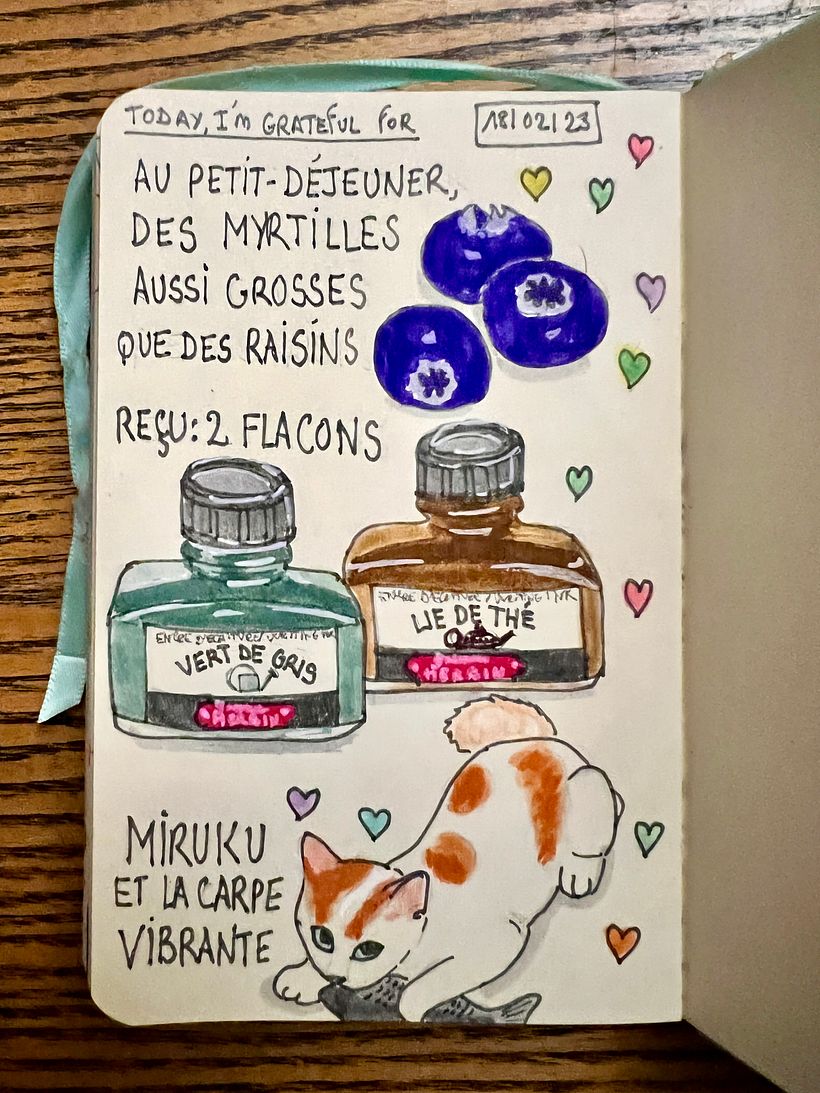 TODAY, I'm GRATEFUL FOR
18/02/23
AU PETIT-DÉJEUNER,
DES MYRTILLES
AUSSI GROSSES
QUE DES RAISINS
REÇU: 2 FLACONS
LIE DE THÉ
HERBIN
VERT DE GRIS
HERBIN
MIRUKU
ET LA CARPE
VIBRANTE